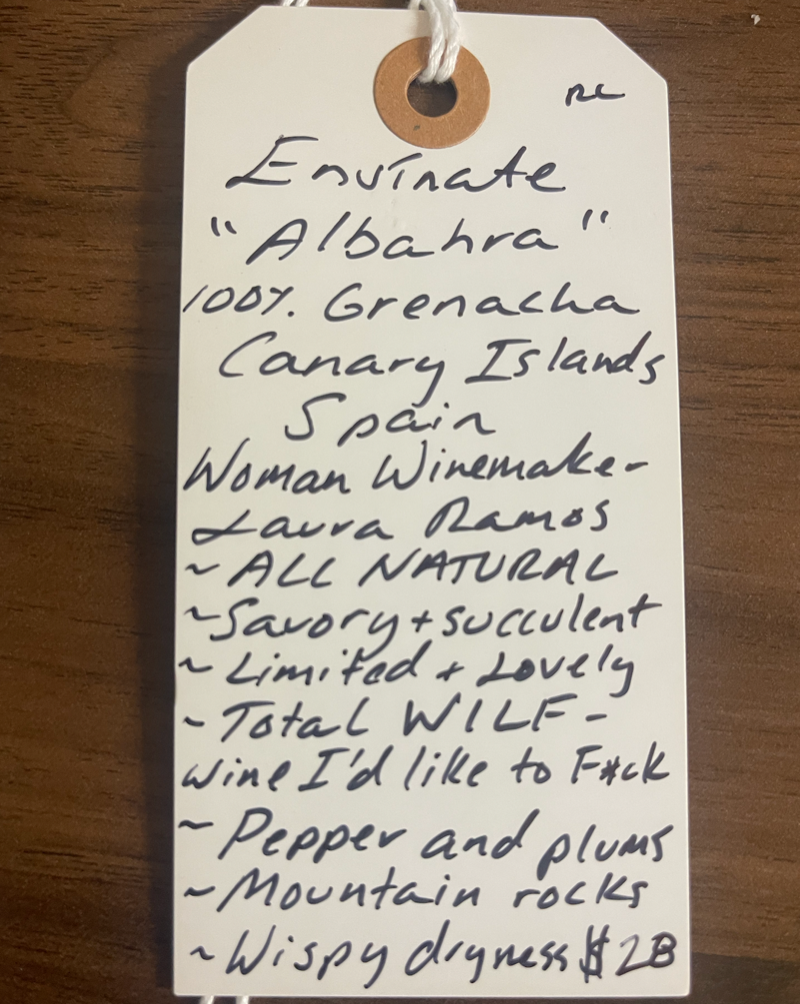 RC
Envínate
"Albahra"
100%. Grenacha
Canary Islands
Spain
Woman Winemaker
Laura Ramos
~ ALL NATURAL
~ Savory + succulent
~ Limited + Lovely
~ Total WILF -
wine I'd like to F*ck
~ Pepper and plums
~ Mountain rocks
~ Wispy dryness $28